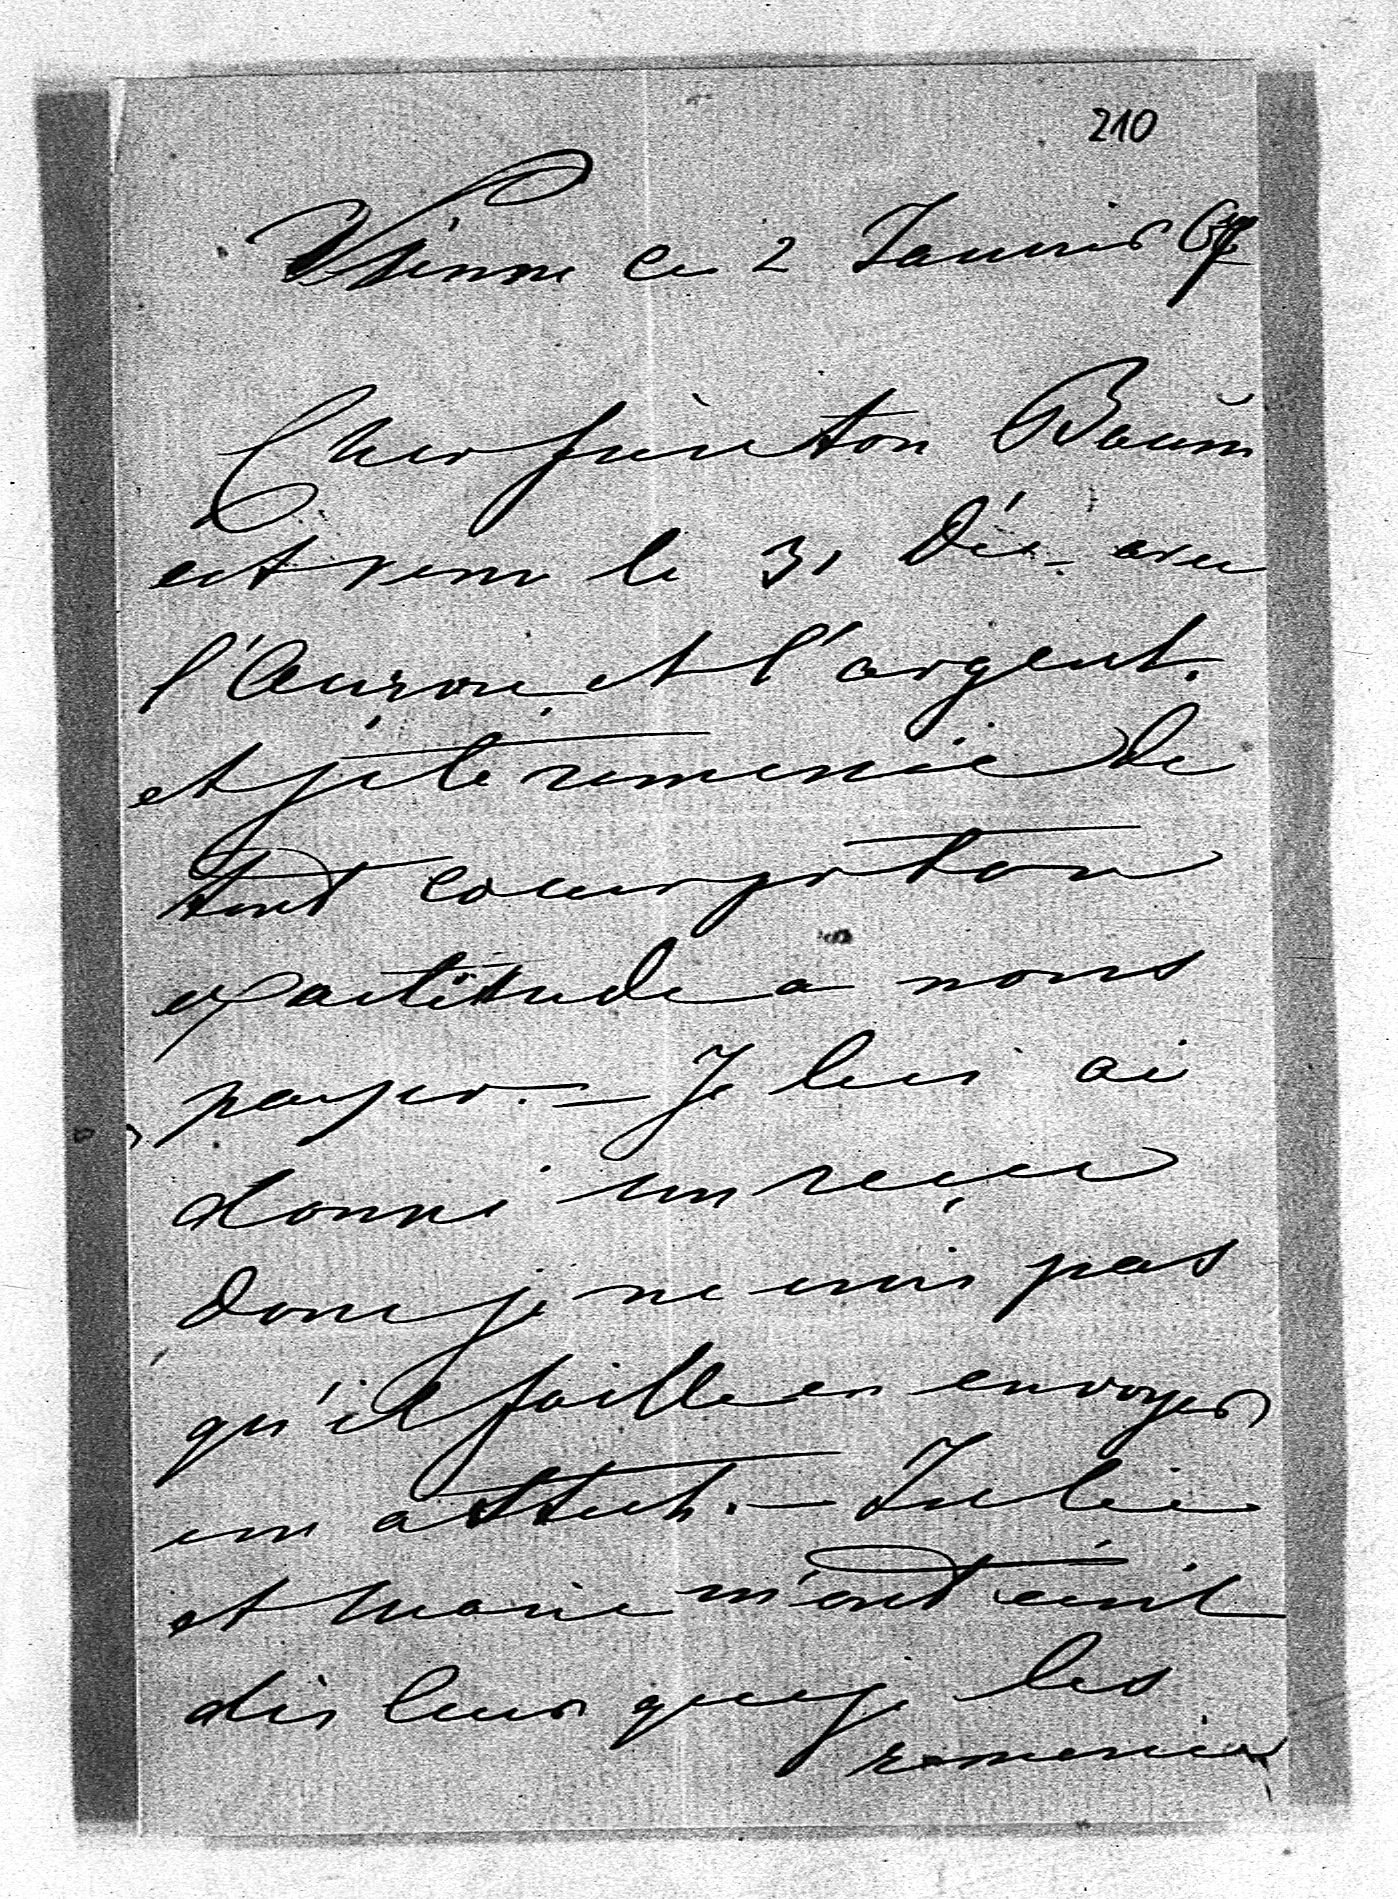 210
Vienne ce 2 Janvier 67
Cher frère ton Baum
est venu le 31 Déc. avec
l'argent.
et je te remercie de
tout coeur pr ton
exactitude a nous
payer. — Je lui ai
donné un reçu
donc je ne crois pas
qu'il faille en envoyer
un attest. — Julie
et Marie m'ont écrit
dis leur que je les
remercie